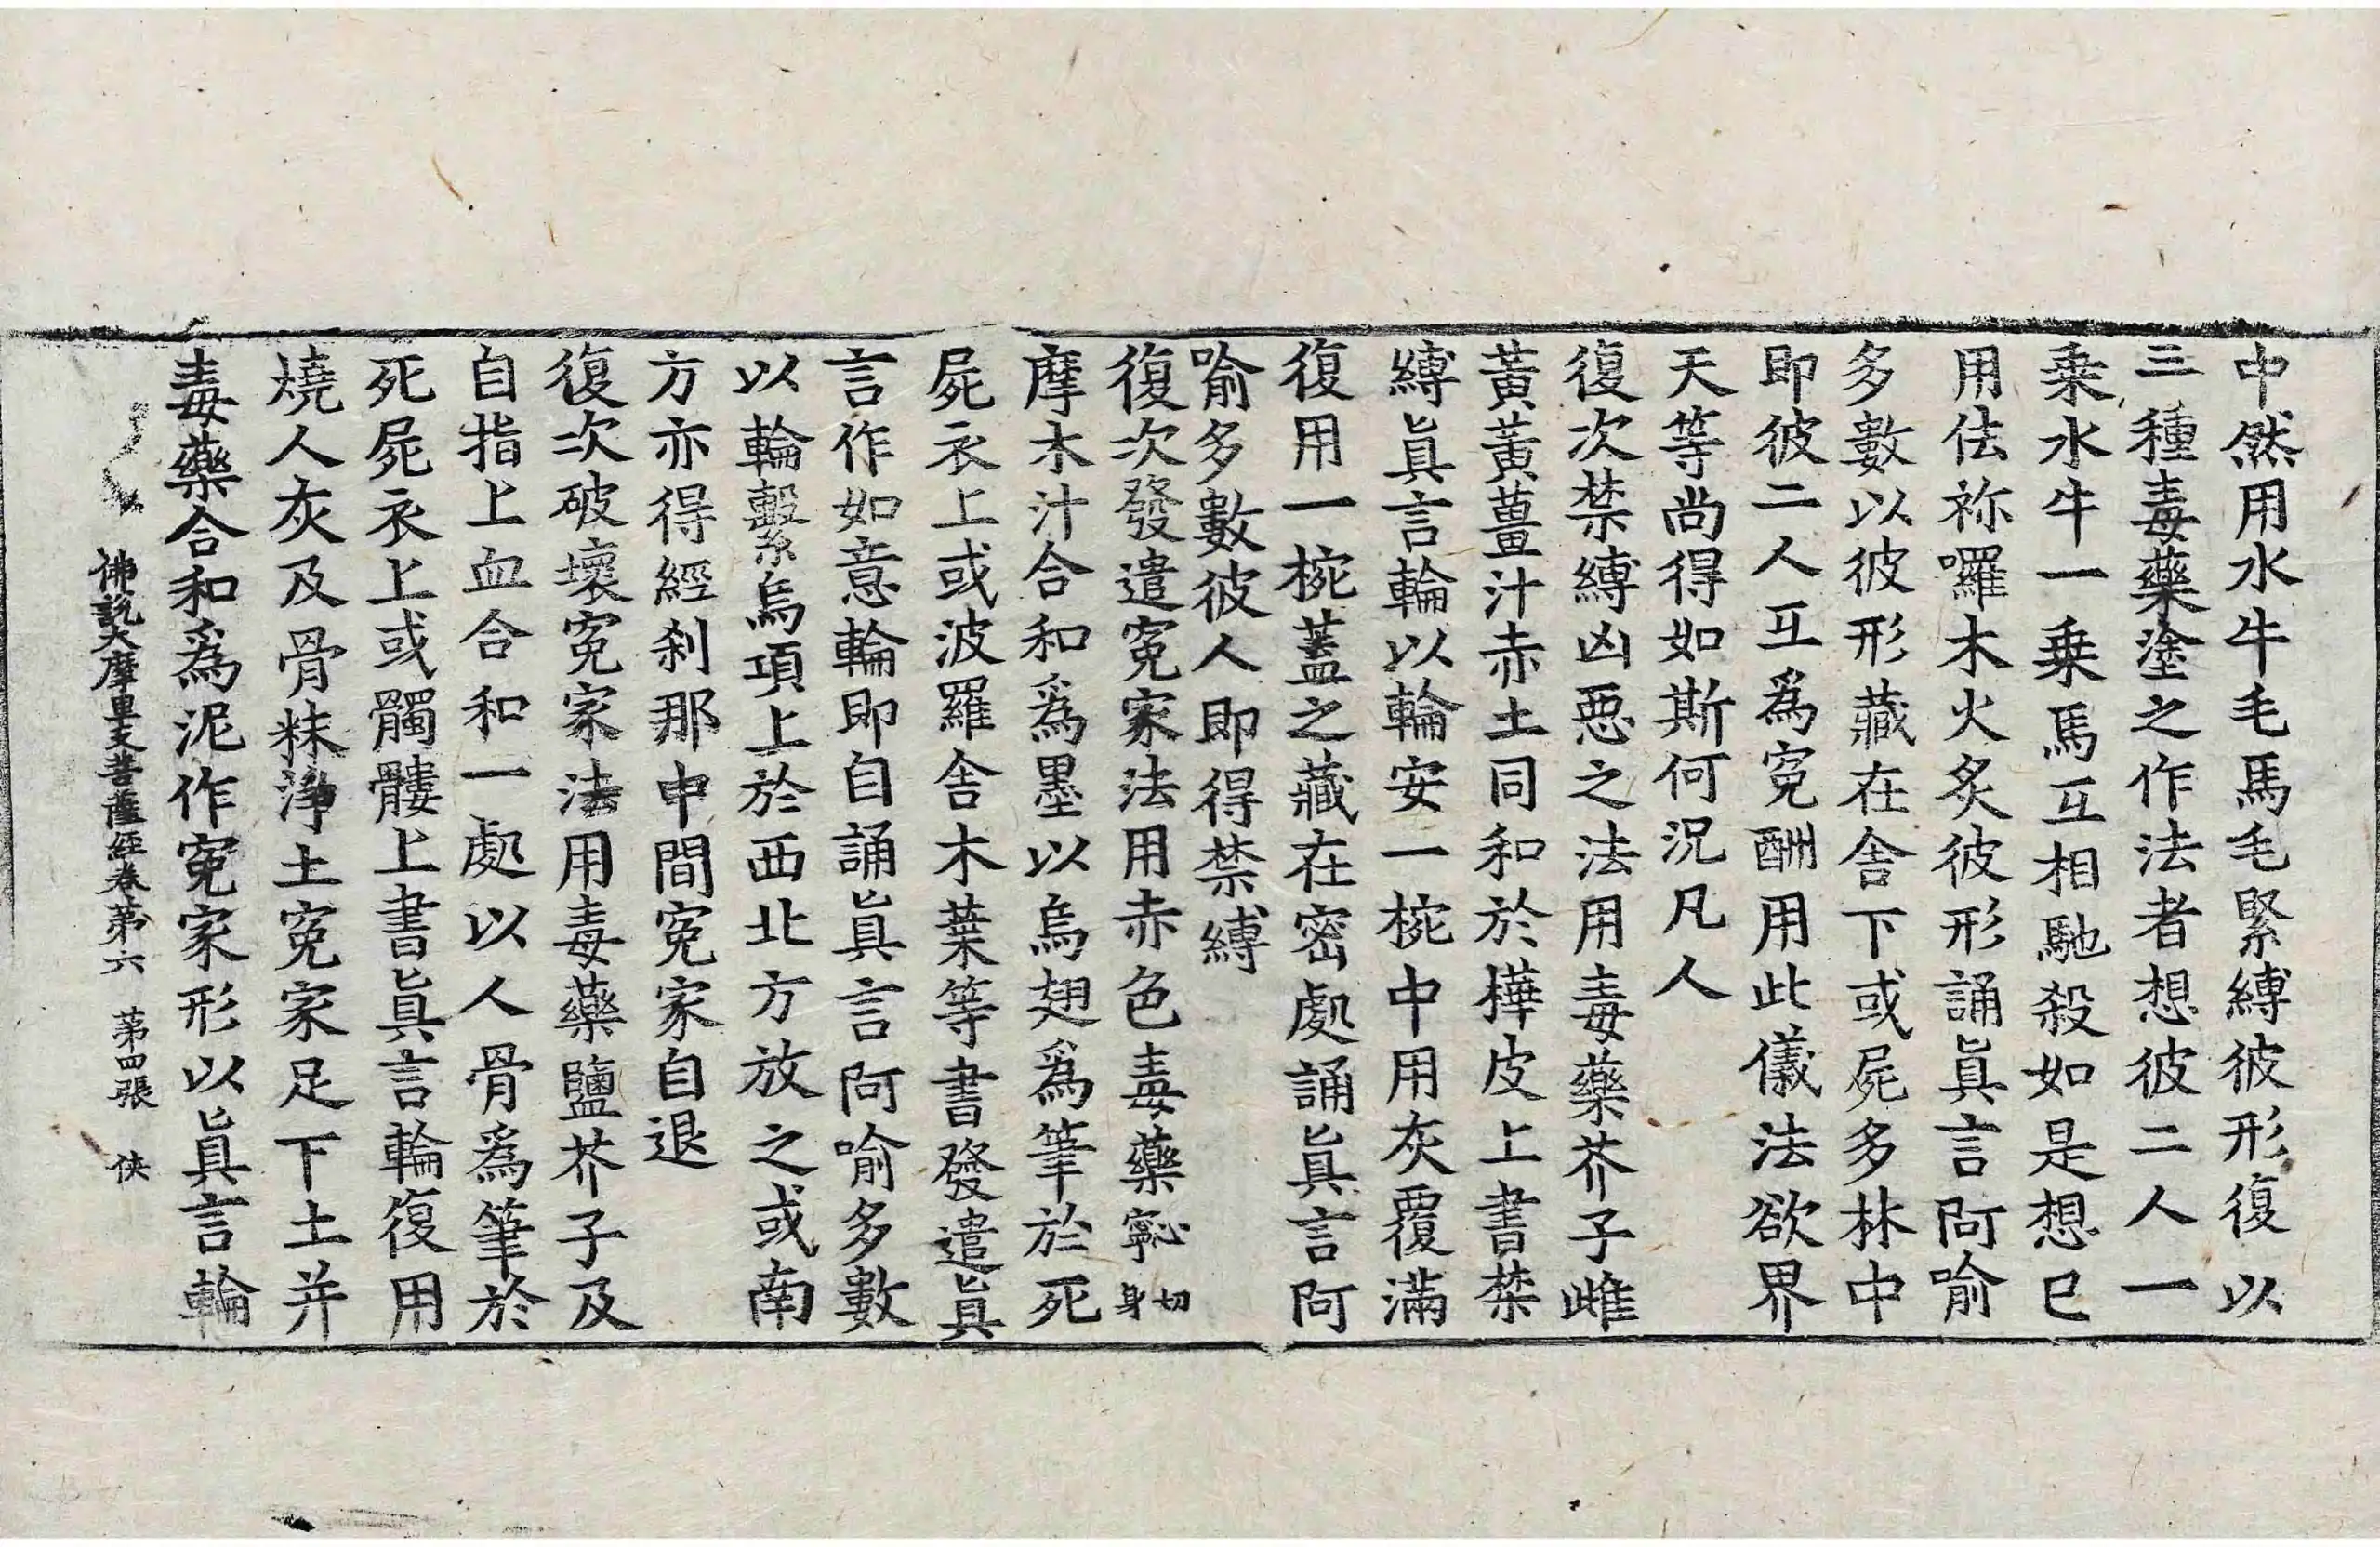 中然用水牛毛馬毛緊縛彼形復以
三種毒藥塗之作法者想彼二人一
乗水牛一乗馬互相馳殺如是想已
用佉祢囉木火炙彼形誦眞言阿喻
多數以彼形藏在舎下或屍多林中
即彼二人互爲寃酬用此儀法欲界
天等尚得如斯何況凡人
復次禁縛凶惡之法用毒藥芥子雌
黃黃薑汁赤土同和於樺皮上書禁
縛眞言輪以輪安一椀中用灰覆滿
復用一椀蓋之藏在密處誦眞言阿
喻多數彼人即得禁縛
復次發遣寃家法用赤色毒藥寧切身
摩木汁合和爲墨以烏翅爲筆於死
屍衣上或波羅舎木葉等書發遣眞
言作如意輪即自誦眞言阿喻多數
以輪繫烏項上於西北方放之或南
方亦得經刹那中間寃家自退
復次破壞寃家法用毒藥鹽芥子及
自指上血合和一處以人骨爲筆於
死屍衣上或髑髏上書眞言輪復用
燒人灰及骨粖淨土寃家足下土并
毒藥合和爲泥作寃家形以眞言輪
佛說大摩里支菩薩經卷第六 第四張 俠